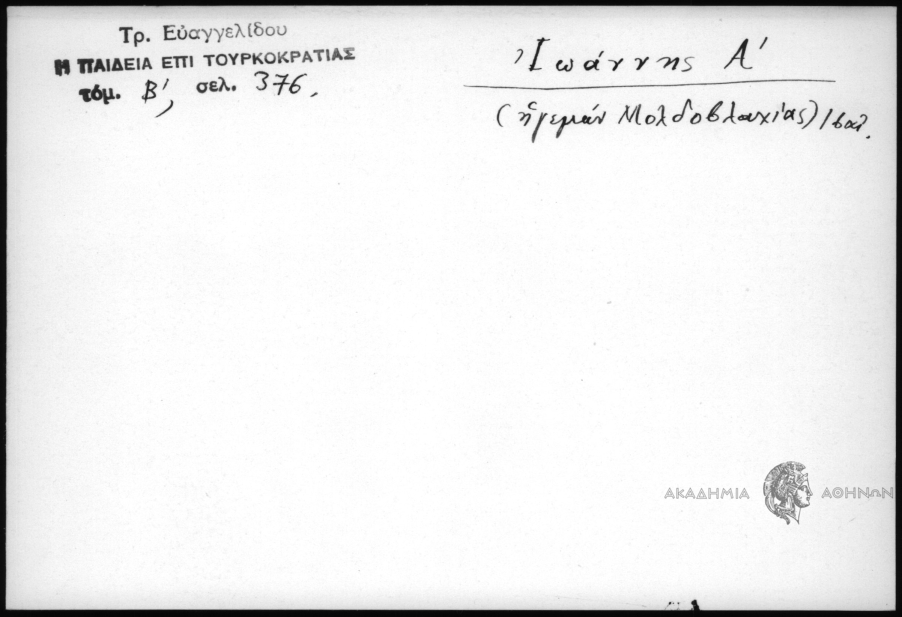 Τρ. Εὐαγγελίδου
Η ΠΑΙΔΕΙΑ ΕΠΙ ΤΟΥΡΚΟΚΡΑΤΙΑΣ
τόμ. Β', σελ. 376.
Ἰωάννης Α'
(ἡγεμὼν Μολδοβλαχίας)
ΑΚΑΔΗΜΙΑ ΑΘΗΝΩΝ